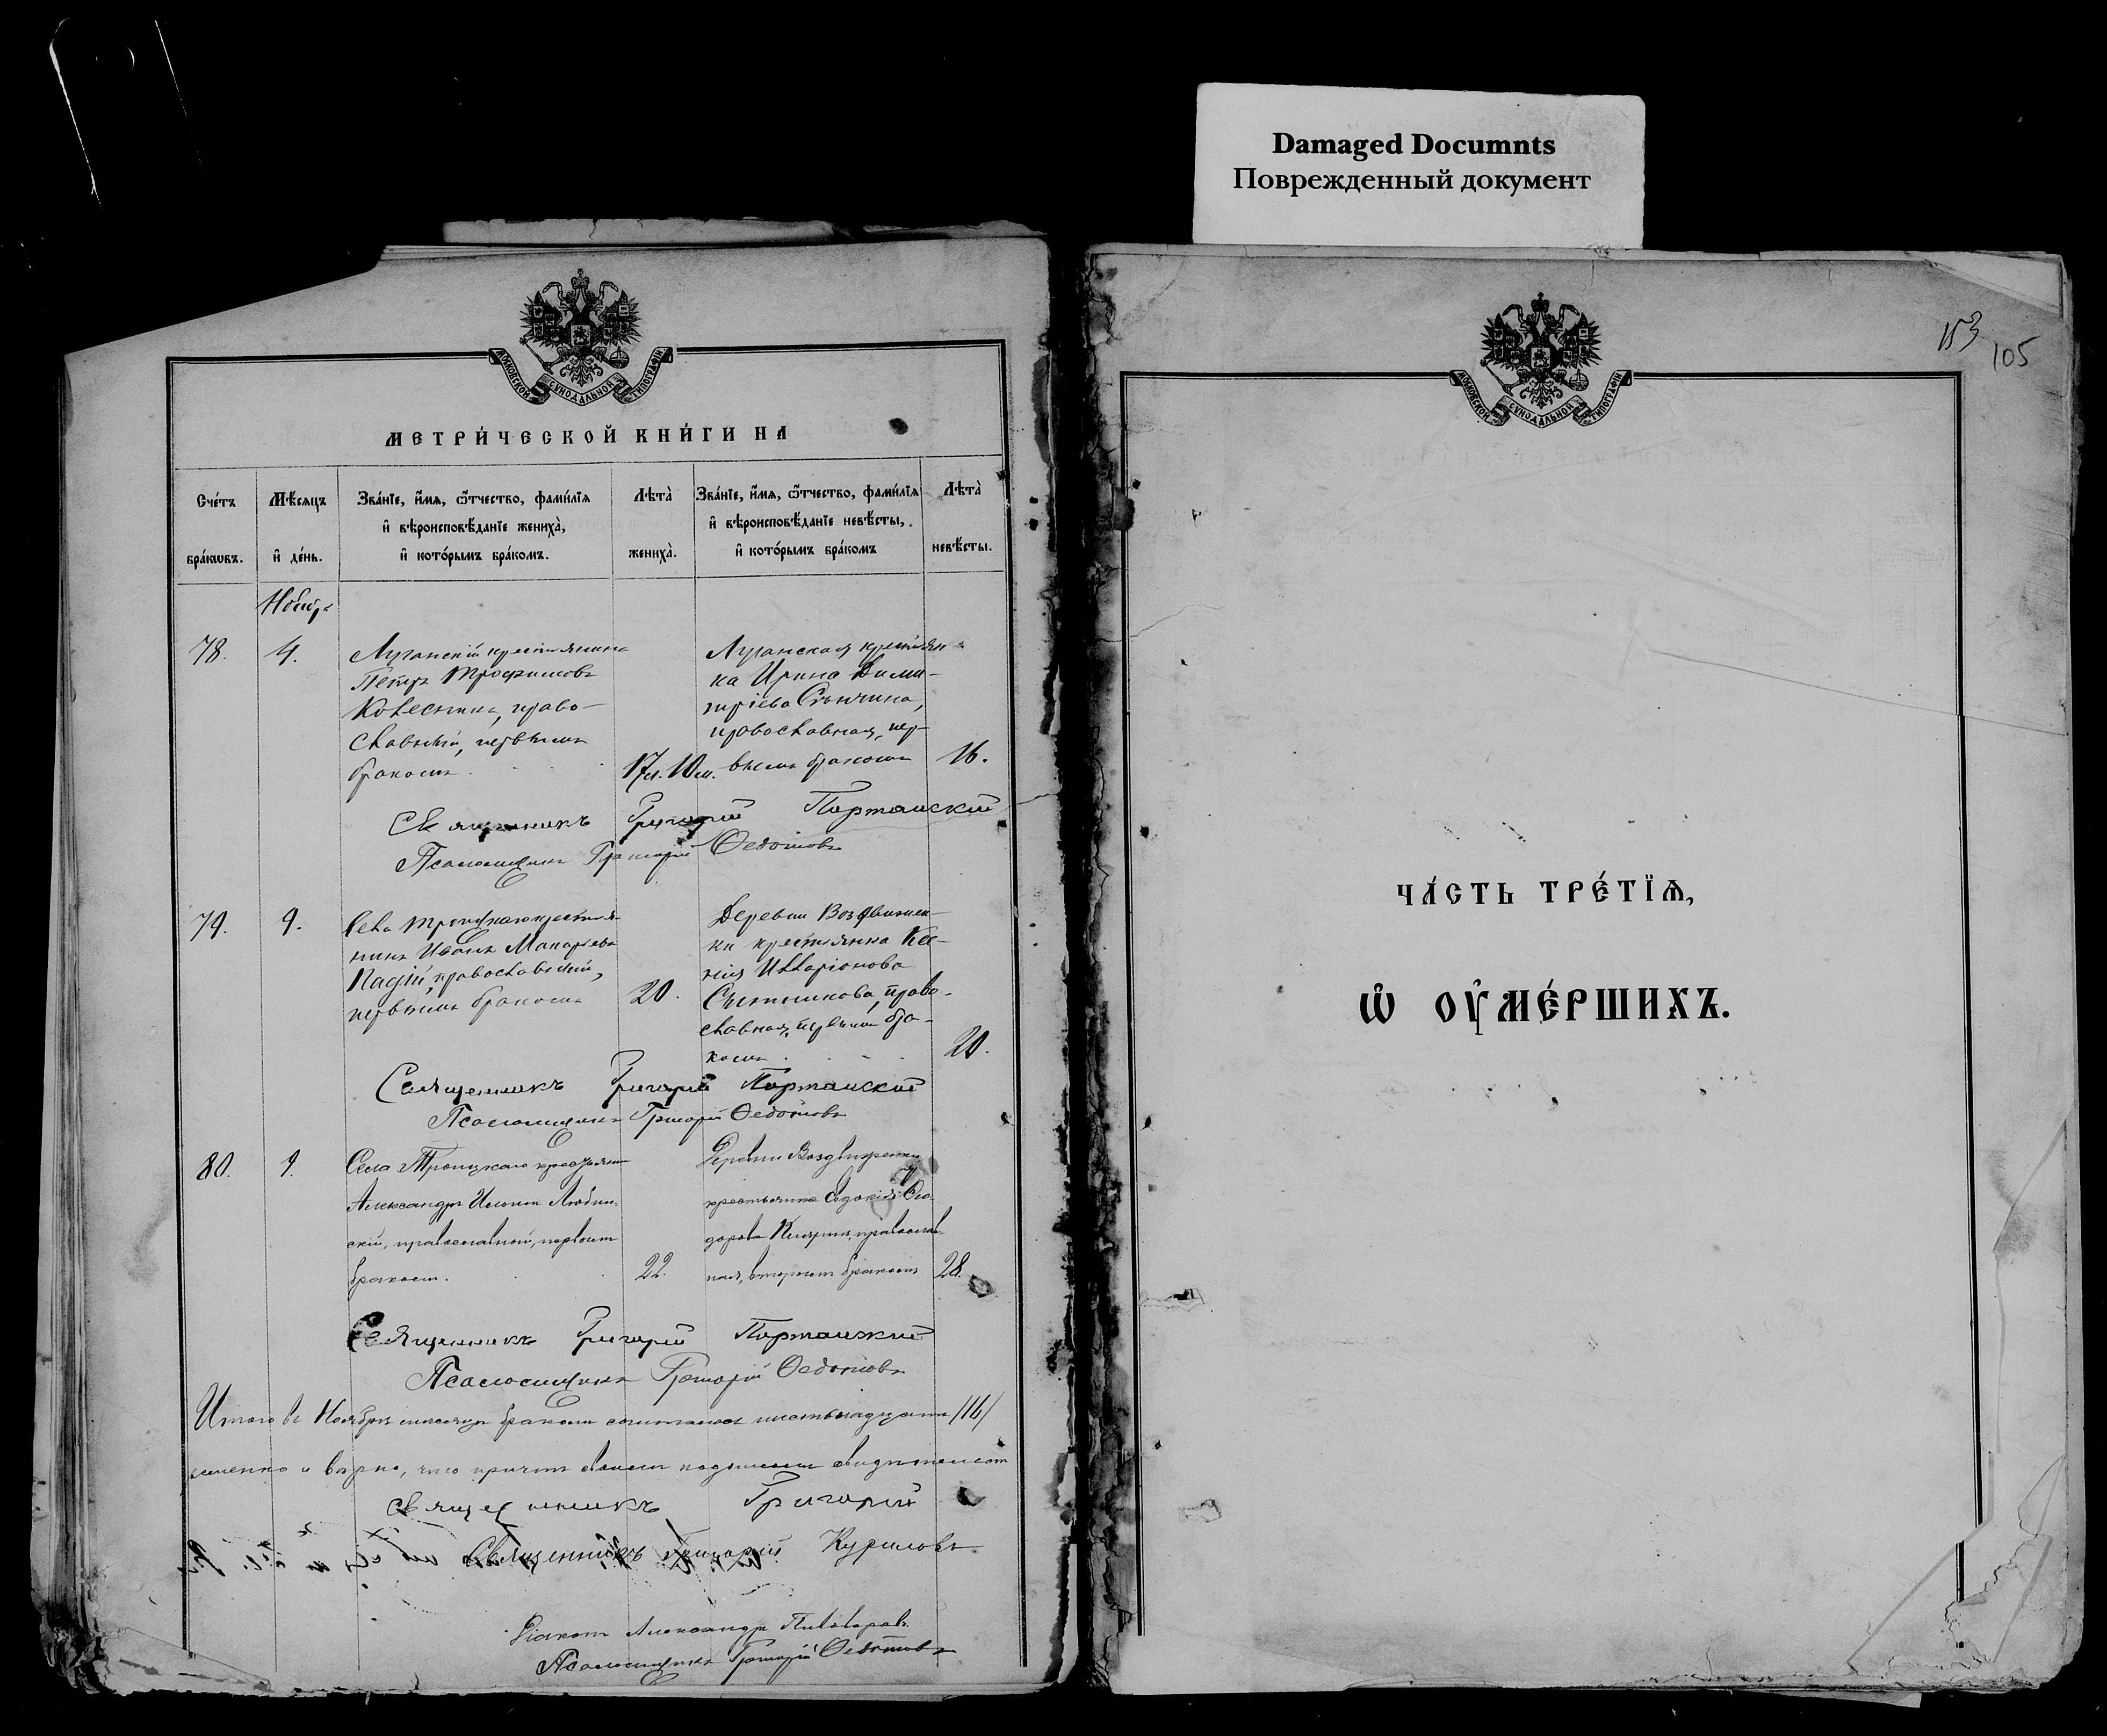 Damaged Documnts
Поврежденный документ
МОСКОВСКОЙ СѴНОДАЛЬНОЙ ТИПОГРАФІИ
МЕТРИ́ЧЕСКОЙ КНИ́ГИ НА
Сче́тъ бра́кѡвъ.
Мѣ́сяцъ и҆ де́нь.
Зва́нїе, и҆́мѧ, ѻ҆́тчество, фами́лїѧ
и҆ вѣроисповѣ́данїе жениха̀,
и҆ кото́рымъ бра́комъ.
Лѣ́та̀ жениха̀.
Зва́нїе, и҆́мѧ, ѻ҆́тчество, фами́лїѧ
и҆ вѣроисповѣ́данїе невѣ́сты,
и҆ кото́рымъ бра́комъ
Лѣ́та̀ невѣ́сты.
Ноябрь
78. 4.
Луганскій крестьянинъ
Петръ Трофимовъ
право-
славный, первымъ
бракомъ.
17 л. 10 м.
Луганская крестьян
ка Ирина Дими-
тріева
православная, пер-
вымъ бракомъ
16.
Священникъ Григорій Портанскій
Псаломщикъ Григорій Ѳедотовъ
79. 9.
Села Троицкаго крестья
нинъ Иванъ Макарьевъ
православный,
первымъ бракомъ
20.
Деревни Воздвижен-
ки крестьянка Ксе-
нія Илларіонова
право-
славная, первымъ бра-
комъ
20.
Священникъ Григорій Портанскій
Псаломщикъ Григорій Ѳедотовъ
80. 9.
Села Троицкаго крестьянинъ
Александръ
скій, православный, первымъ
бракомъ.
22.
Деревни Воздвиженки
крестьянка Евдокія Ѳео-
дорова православ-
ная, вторымъ бракомъ
28.
Священникъ Григорій Портанскій
Псаломщикъ Григорій Ѳедотовъ
Итого въ Ноябрѣ мѣсяцѣ бракомъ сочиталось шестьнадцать /16/
и вѣрно, что причтъ своимъ подписомъ свидѣтельствуетъ
Священникъ Григорій
Священникъ Григорій Куриловъ
Діаконъ Александръ Пивоваровъ
Псаломщикъ Григорій Ѳедотовъ
153
105
МОСКОВСКОЙ СѴНОДАЛЬНОЙ ТИПОГРАФІИ
ЧА́СТЬ ТРЕ́ТЇѦ,
Ѡ҆ ОУ҆МЕ́РШИХЪ.